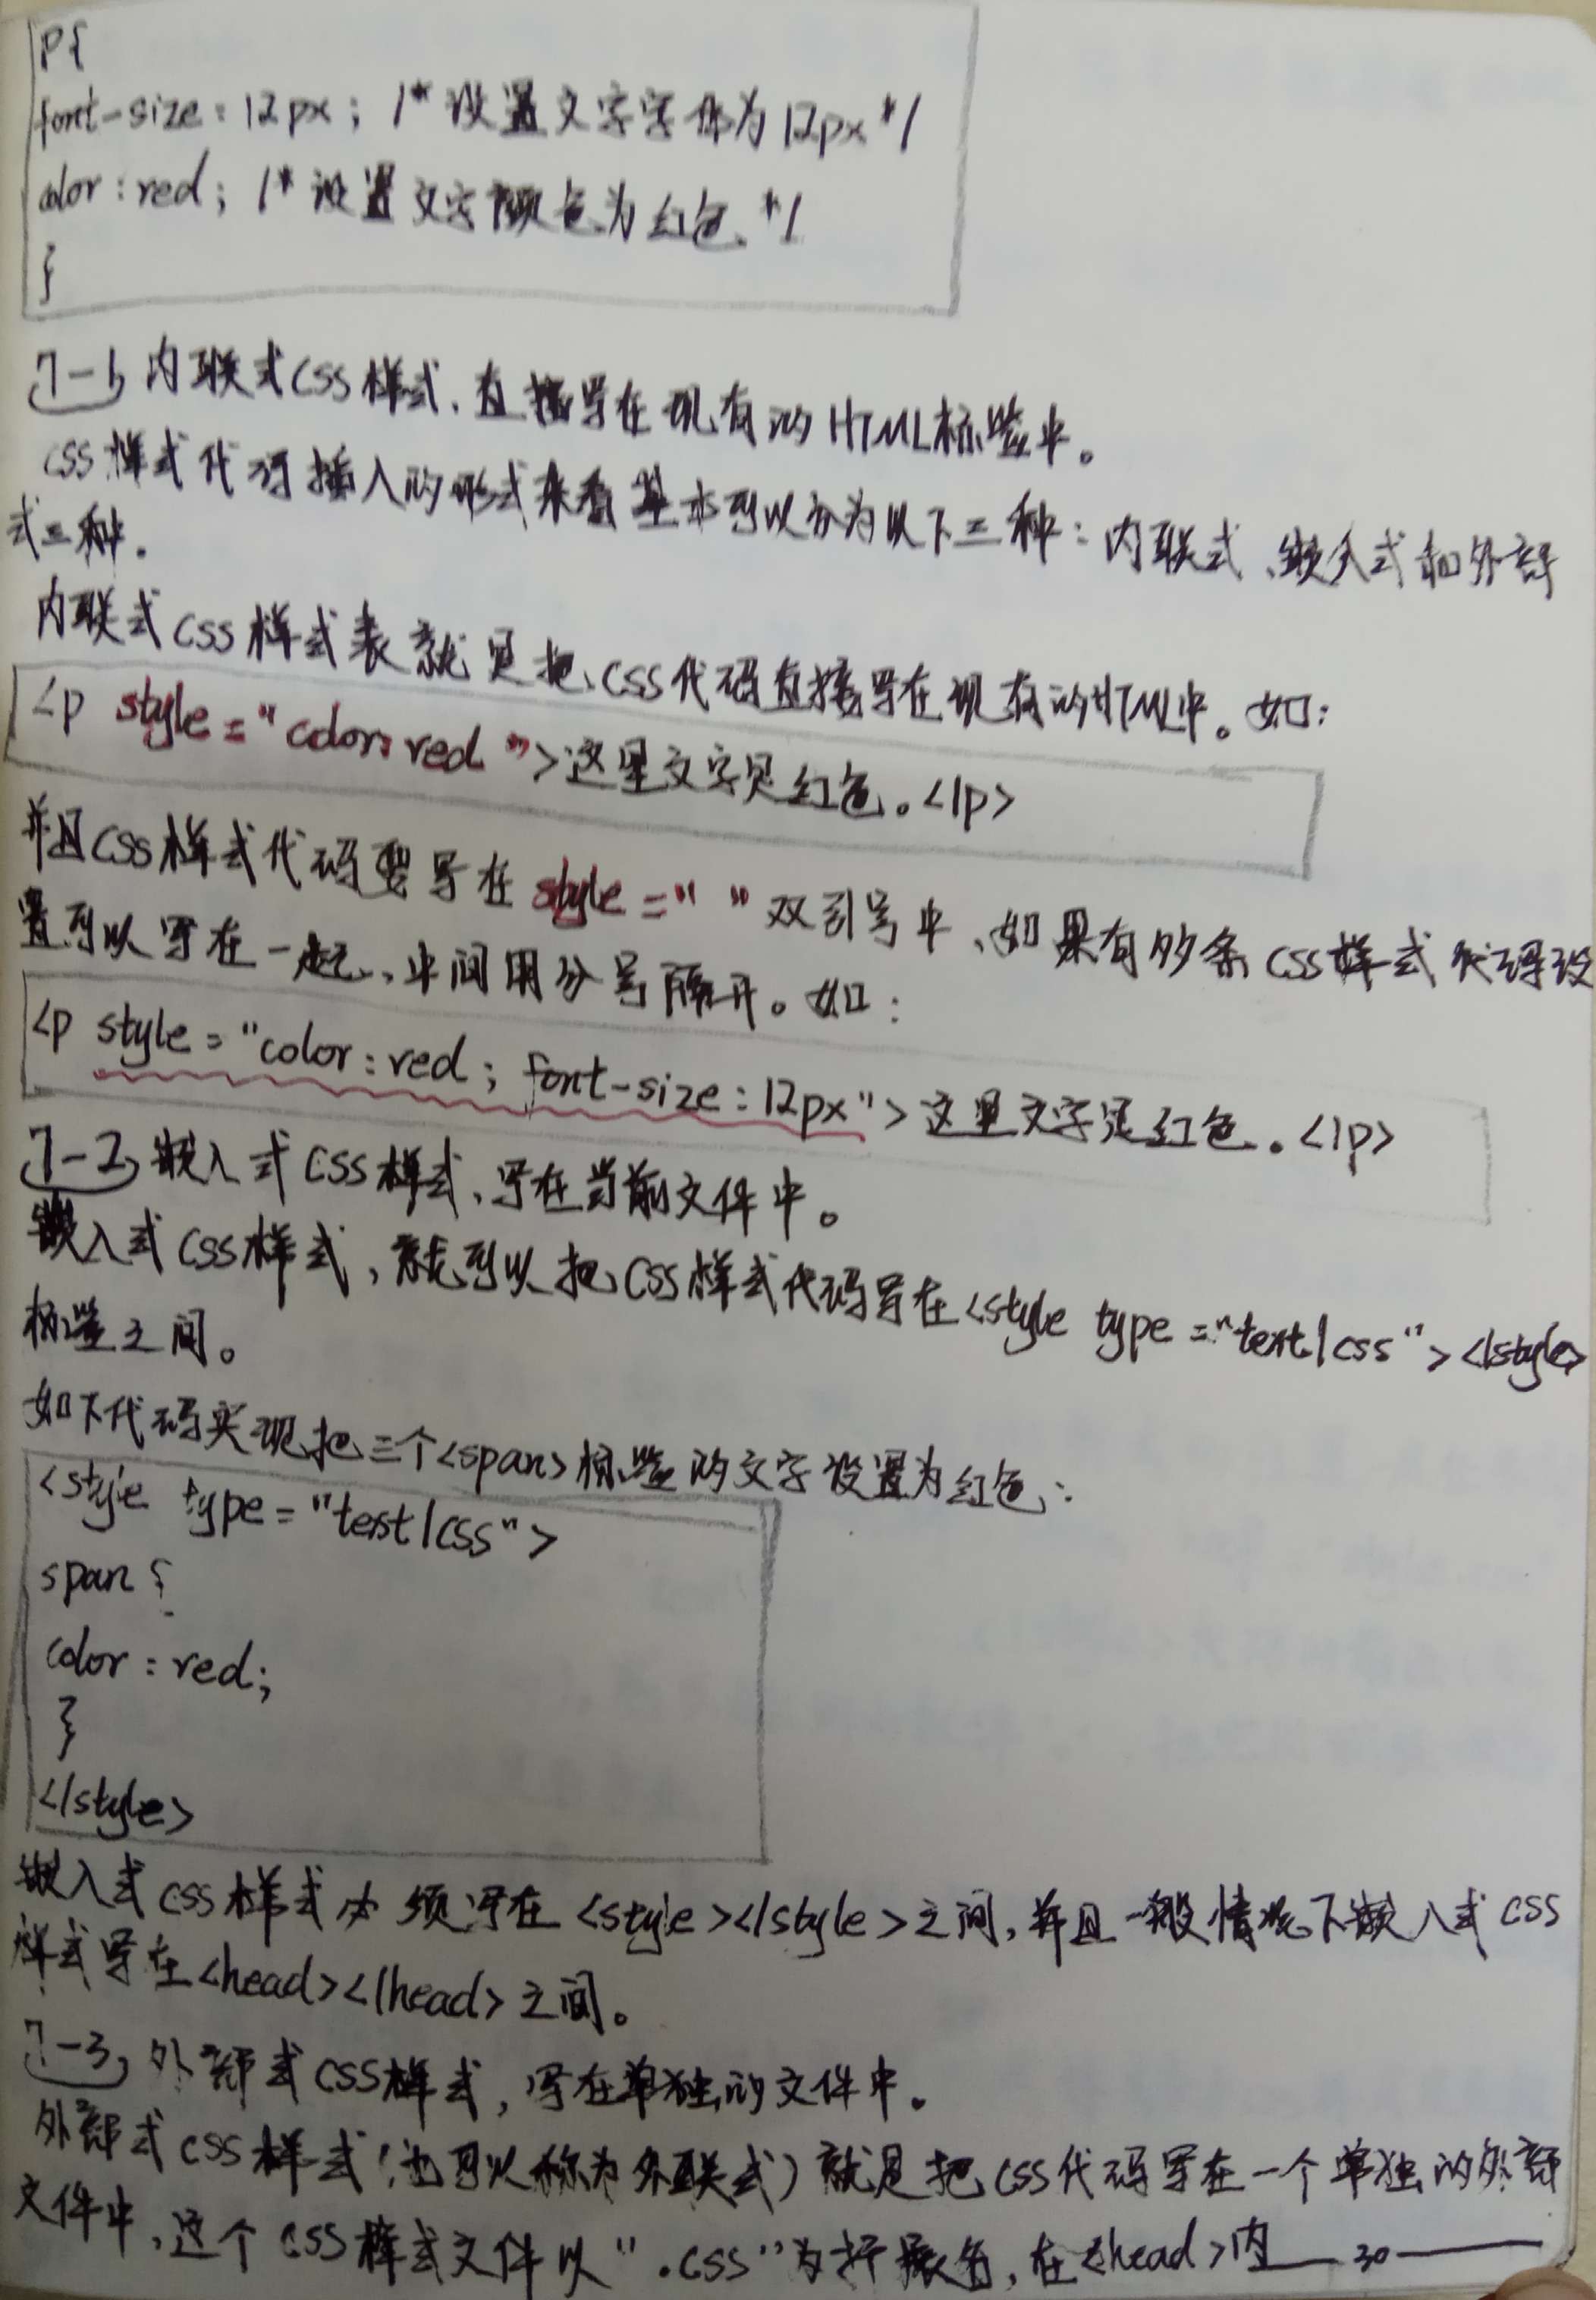 p{
font-size:12px; /*设置文字字体为12px*/
color:red; /*设置文字颜色为红色*/
}
7-1,内联式CSS样式,直接写在现有的HTML标签中。
CSS样式代码插入的形式来看基本可以分为以下三种:内联式、嵌入式和外部
式三种。
内联式CSS样式表就是把CSS代码直接写在现有的HTML中。如:
<p style="color:red">这里文字是红色。</p>
并且CSS样式代码要写在style=" "双引号中,如果有多条CSS样式代码设
置可以写在一起,中间用分号隔开。如:
<p style="color:red; font-size:12px">这里文字是红色。</p>
7-2,嵌入式CSS样式,写在当前文件中。
嵌入式CSS样式,就可以把CSS样式代码写在<style type="text/css"></style>
标签之间。
如下代码实现把三个<span>标签的文字设置为红色:
<style type="text/css">
span{
color:red;
}
</style>
嵌入式CSS样式必须写在<style></style>之间,并且一般情况下嵌入式CSS
样式写在<head></head>之间。
7-3,外部式CSS样式,写在单独的文件中。
外部式CSS样式(也可以称为外联式)就是把CSS代码写在一个单独的外部
文件中,这个CSS样式文件以".css"为扩展名,在<head>内 30